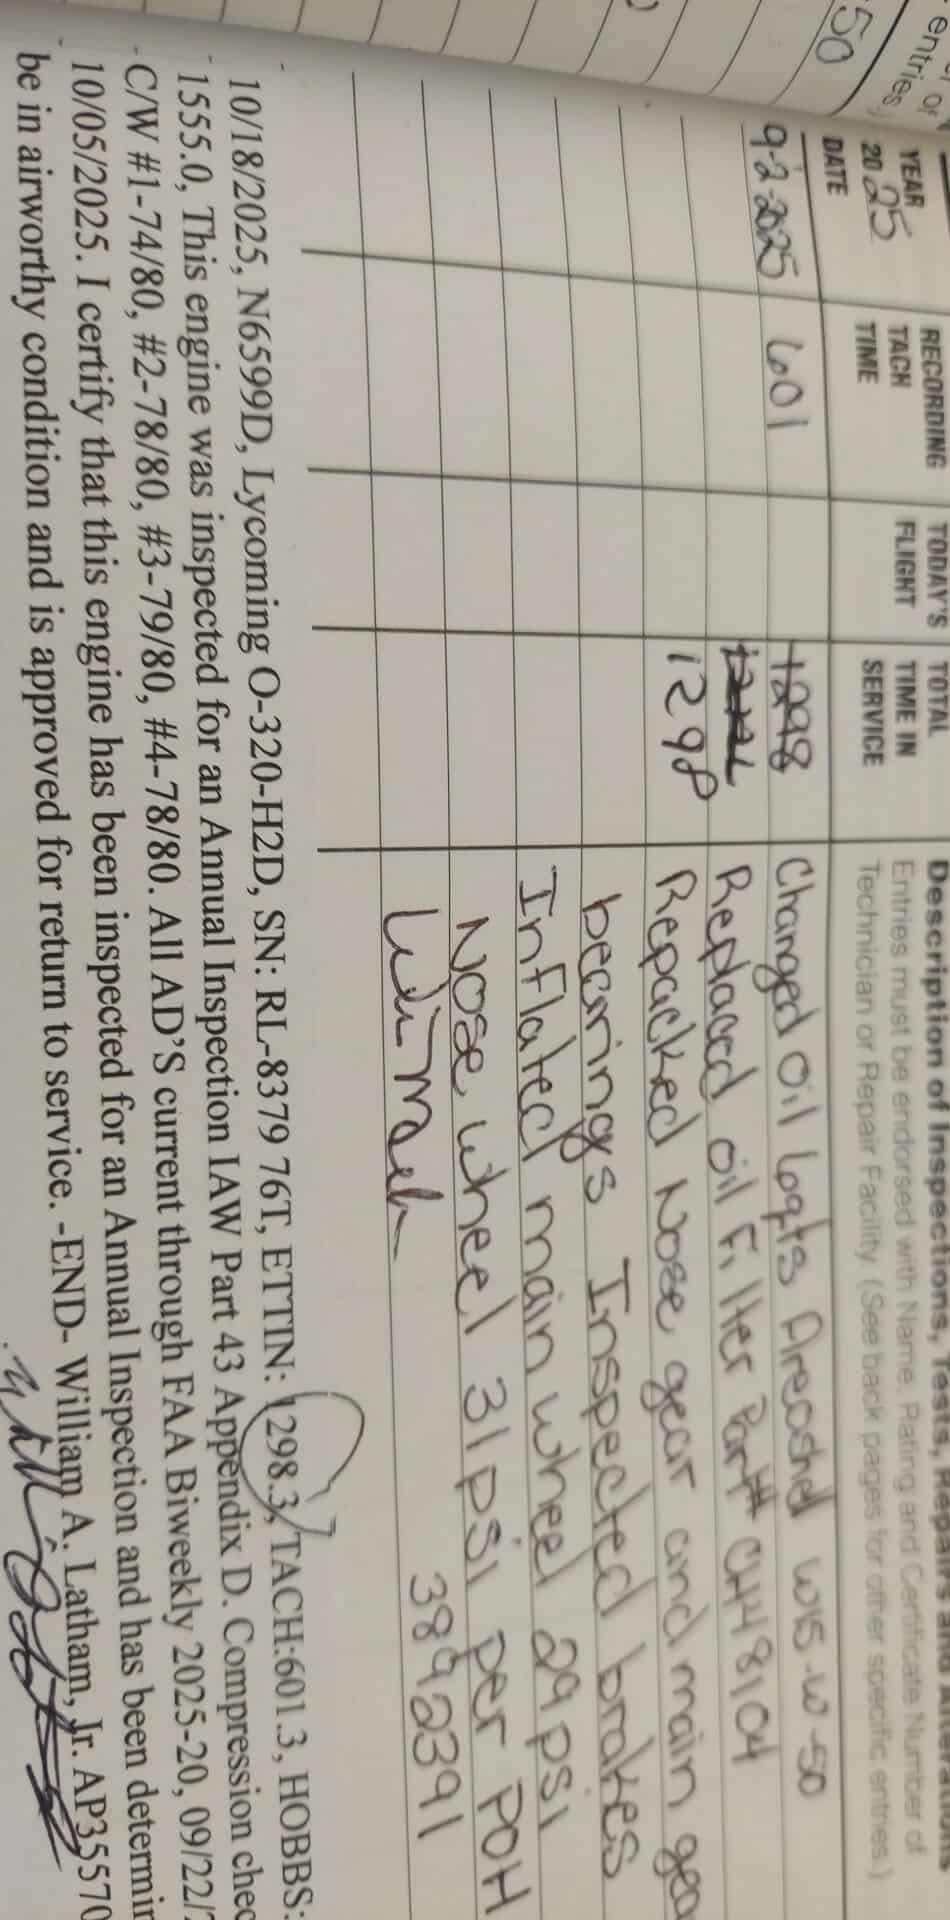 entries
50
YEAR
2025
DATE
RECORDING
TACH
TIME
TODAY'S
FLIGHT
TOTAL
TIME IN
SERVICE
Description of Inspections, Tests, Repairs and Alterations
Entries must be endorsed with Name, Rating and Certificate Number of
Technician or Repair Facility. (See back pages for other specific entries.)
9-2-2025 601 1298 Changed oil 6qts Aeroshell W15-W-50
Replaced oil Filter Part# CH48104
1298 Repacked Nose gear and main gear
bearings Inspected brakes
Inflated main wheel 29 psi
Nose wheel 31 psi per POH
3892391
10/18/2025, N6599D, Lycoming O-320-H2D, SN: RL-8379 76T, ETTIN: 1298.3, TACH:601.3, HOBBS:
1555.0, This engine was inspected for an Annual Inspection IAW Part 43 Appendix D. Compression chec
C/W #1-74/80, #2-78/80, #3-79/80, #4-78/80. All AD'S current through FAA Biweekly 2025-20, 09/22/
10/05/2025. I certify that this engine has been inspected for an Annual Inspection and has been determin
be in airworthy condition and is approved for return to service. -END- William A. Latham, Jr. AP35570